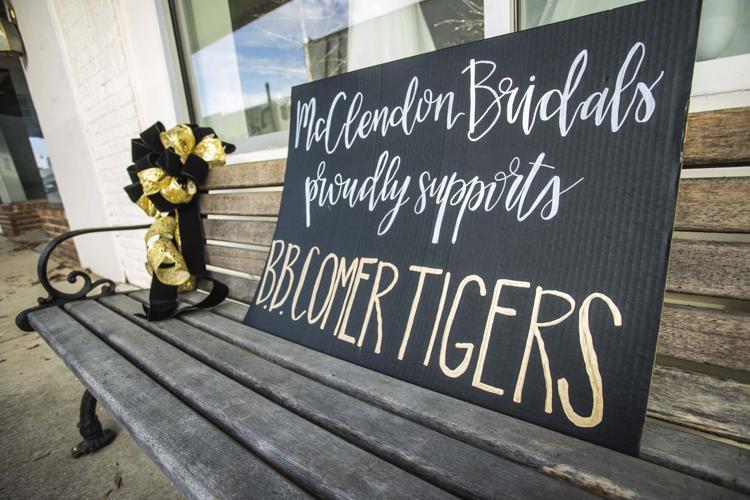 McClendon Bridals
proudly supports
B.B. COMER TIGERS